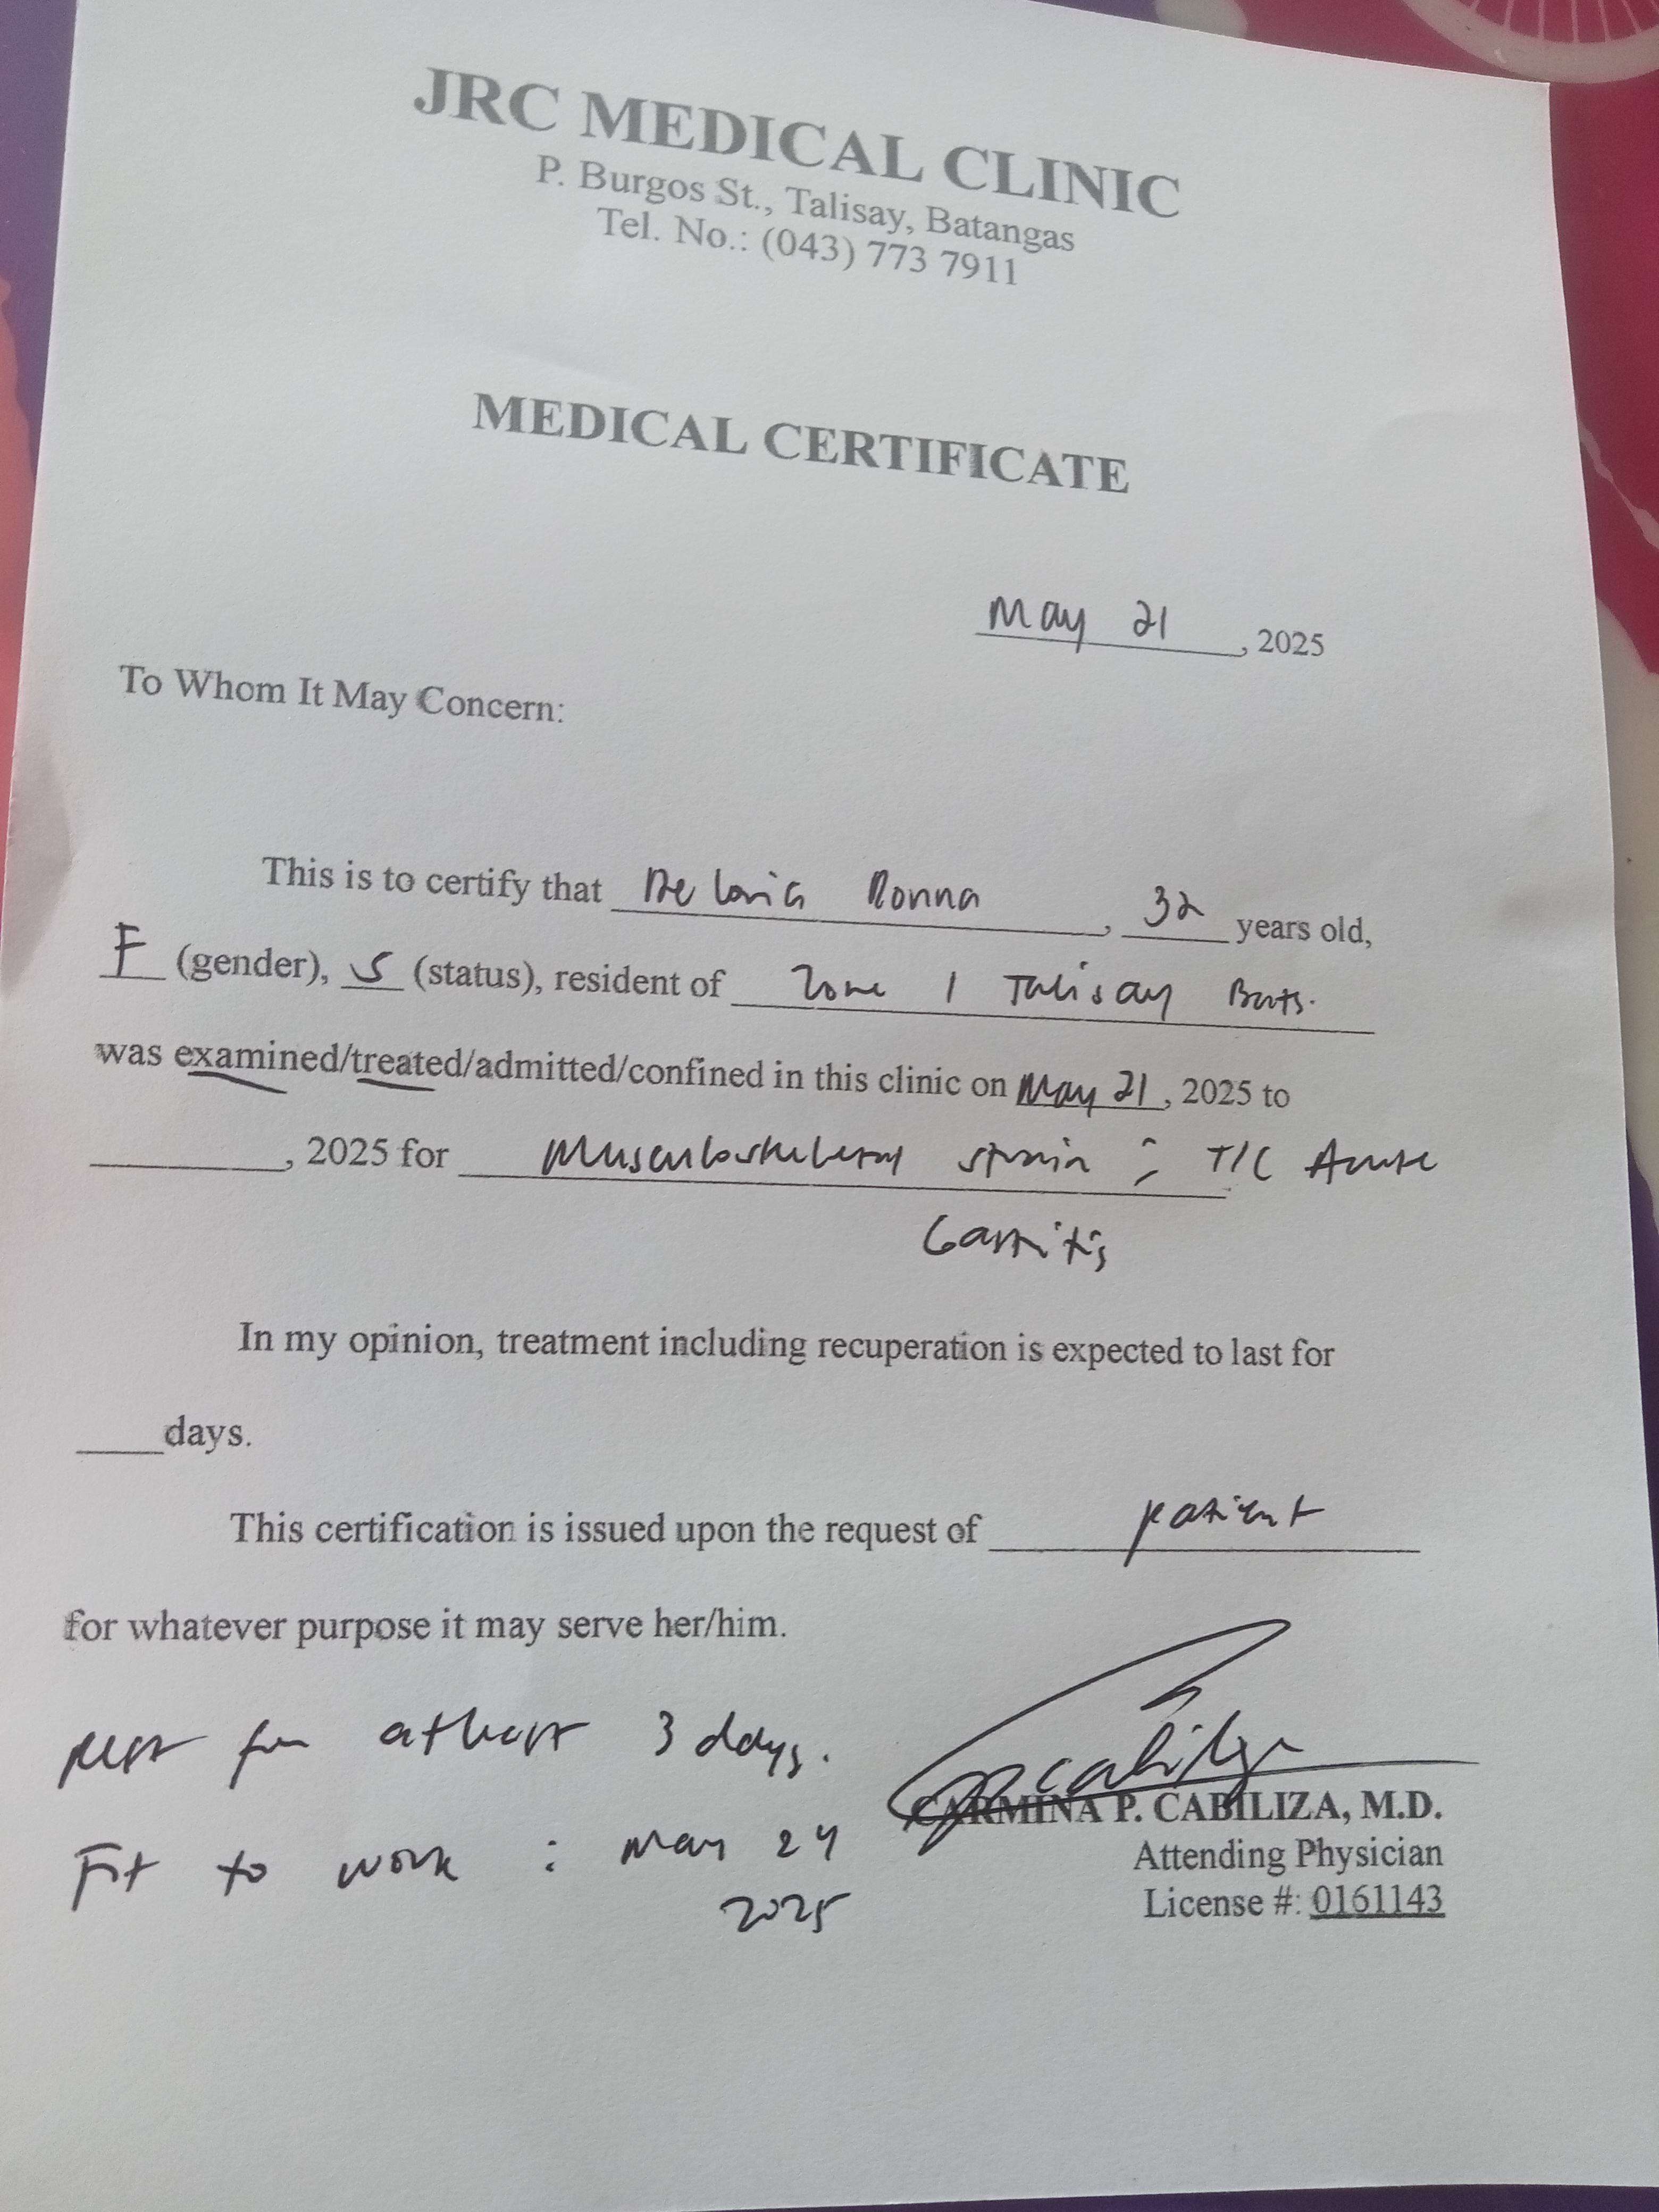 JRC MEDICAL CLINIC
P. Burgos St., Talisay, Batangas
Tel. No.: (043) 773 7911
MEDICAL CERTIFICATE
May 21, 2025
To Whom It May Concern:
This is to certify that De Loria Ronna, 32 years old,
F (gender), S (status), resident of Zone 1 Talisay Bats.
was examined/treated/admitted/confined in this clinic on May 21, 2025 to
____, 2025 for Musculoskeletal strain ; T/C Acute
Gastritis
In my opinion, treatment including recuperation is expected to last for
____days.
This certification is issued upon the request of patient
for whatever purpose it may serve her/him.
Rest for atleast 3 days.
Fit to work : May 24
2025
CARMINA P. CABILIZA, M.D.
Attending Physician
License #: 0161143